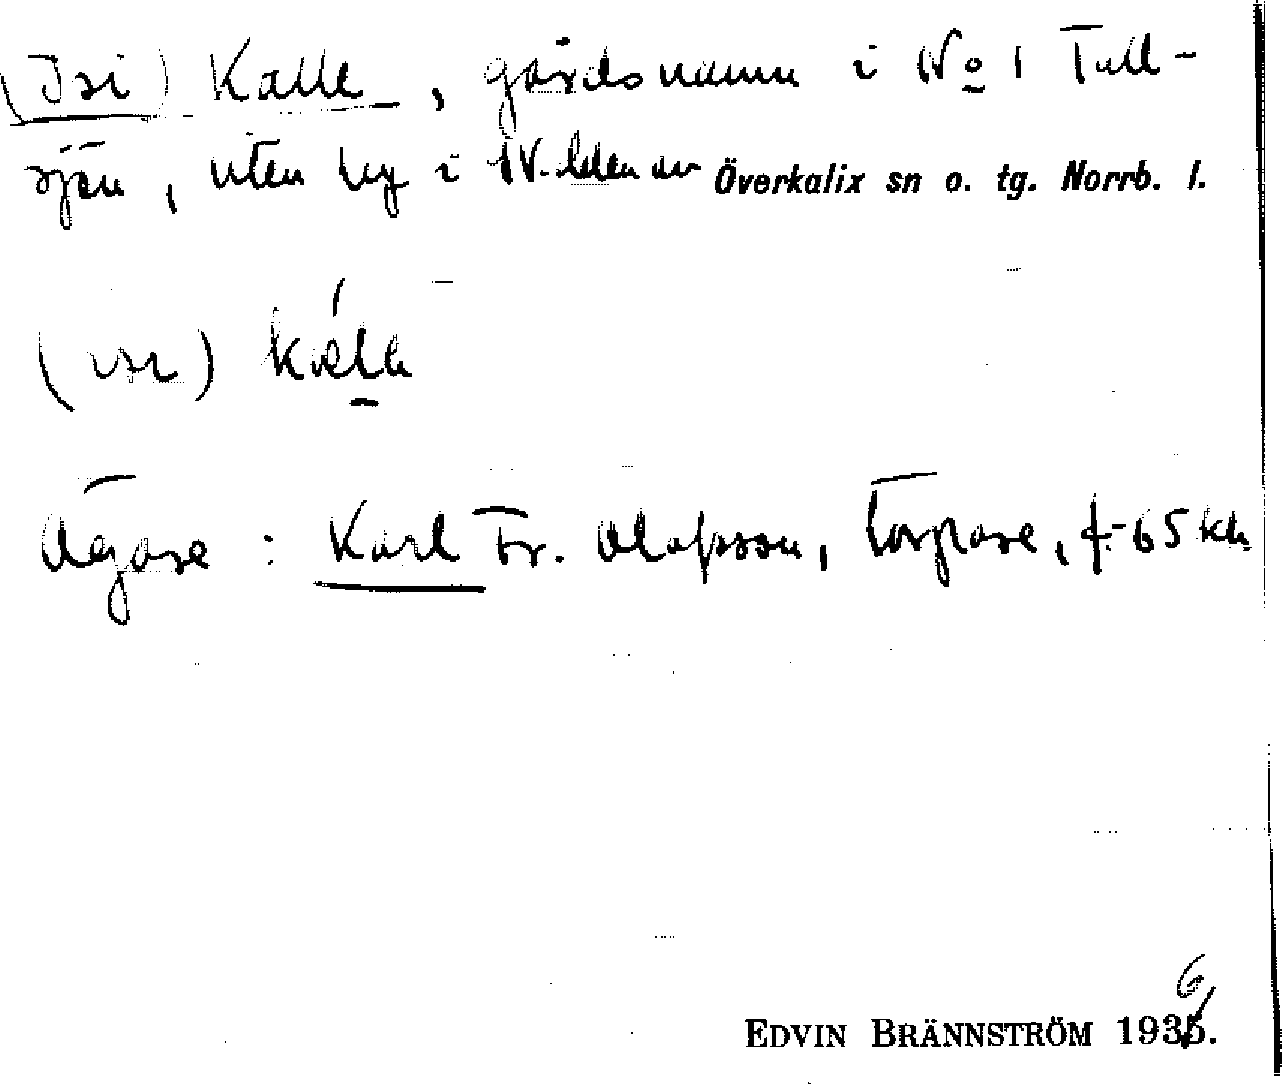 (Isi) Kalle, gårdsnamn i No 1 Tall-
sjön, liten by i N. delen av Överkalix sn o. tg. Norrb. l.
(ısı) kálɩ
Ägare: Karl Fr. Olofsson, torpare, f. 65 kh.
6
EDVIN BRÄNNSTRÖM 1935.